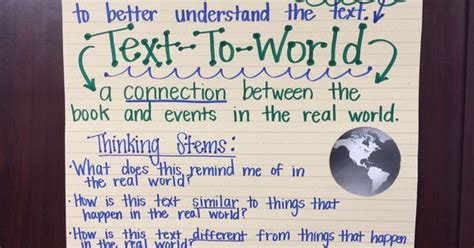 to better understand the text.
Text-To-World
a connection between the
book and events in the real world.
Thinking Stems:
•What does this remind me of in
the real world?
•How is this text similar to things that
happen in the real world?
•How is this text different from things that
happen in the real world?